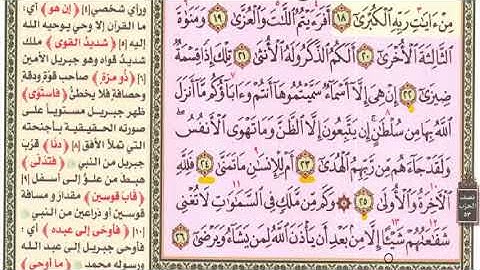 مِنْ ءَايَٰتِ رَبِّهِ ٱلْكُبْرَىٰٓ ١٨ أَفَرَءَيْتُمُ ٱللَّٰتَ وَٱلْعُزَّىٰ ١٩ وَمَنَوٰةَ
ٱلثَّالِثَةَ ٱلْأُخْرَىٰٓ ٢٠ أَلَكُمُ ٱلذَّكَرُ وَلَهُ ٱلْأُنثَىٰ ٢١ تِلْكَ إِذًا قِسْمَةٌ
ضِيزَىٰٓ ٢٢ إِنْ هِىَ إِلَّآ أَسْمَآءٌ سَمَّيْتُمُوهَآ أَنتُمْ وَءَابَآؤُكُم مَّآ أَنزَلَ
ٱللَّهُ بِهَا مِن سُلْطَٰنٍ إِن يَتَّبِعُونَ إِلَّا ٱلظَّنَّ وَمَا تَهْوَى ٱلْأَنفُسُ
وَلَقَدْ جَآءَهُم مِّن رَّبِّهِمُ ٱلْهُدَىٰٓ ٢٣ أَمْ لِلْإِنسَٰنِ مَا تَمَنَّىٰ ٢٤ فَلِلَّهِ
ٱلْءَاخِرَةُ وَٱلْأُولَىٰ ٢٥ ۞ وَكَم مِّن مَّلَكٍ فِى ٱلسَّمَٰوَٰتِ لَا تُغْنِى
شَفَٰعَتُهُمْ شَيْـًٔا إِلَّا مِنۢ بَعْدِ أَن يَأْذَنَ ٱللَّهُ لِمَن يَشَآءُ وَيَرْضَىٰٓ ٢٦
ورأي شخصي [٤] ﴿إن هو﴾ أي:
ما القرآن إلا وحي يوحيه الله
إليه [٥] ﴿شديد القوى﴾ ملك
شديد قواه وهو جبريل الأمين
[٦] ﴿ذو مرة﴾ صاحب قوة ودقة
وحصافة فلا يخطئ ﴿فاستوى﴾
ظهر جبريل مستوياً على
صورته الحقيقية بأجنحته
التي تملأ الأفق [٨] ﴿دنا﴾ قرب
جبريل من النبي ﴿فتدلى﴾
هبط من علو إلى أسفل [٩]
﴿قاب قوسين﴾ مقدار و مسافة
قوسين أو ذراعين من النبي
[١٠] ﴿فأوحى إلى عبده﴾ أي:
فأوحى جبريل إلى عبد الله
ورسوله محمد ﴿ما أوحى﴾
نصف
الحزب
٥٣